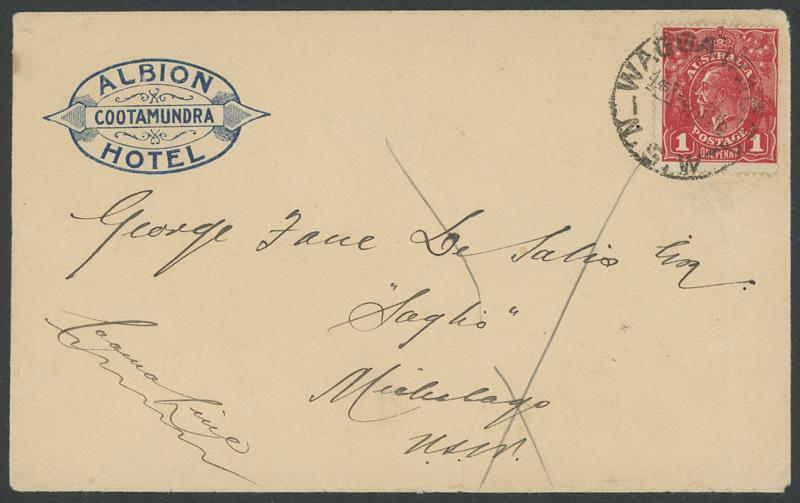 ALBION
COOTAMUNDRA
HOTEL
WAGGA
N.S.W
AUSTRALIA
1 POSTAGE 1
ONE PENNY
George Fane De Salis Esq.
"Soglio"
Michelago
N.S.W.
Cooma Line